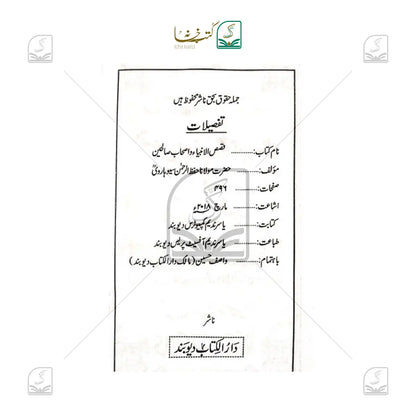 کتب خانہ
جملہ حقوق بحق ناشر محفوظ ہیں
تفصیلات
نام کتاب:............ قصص الانبیاء واصحاب صالحین
مؤلف:............ حضرت مولانا حفظ الرحمٰن سیوہاروی
صفحات:............ ۴۹۶
اشاعت:............ مارچ ۲۰۱۸ء
کتابت:............ یاسر ندیم کمپیوٹرس دیوبند
طباعت:............ یاسر ندیم آفسیٹ پریس دیوبند
باہتمام:............ واصف حسین (مالک دارالکتاب دیوبند)
ناشر
دارالکتاب دیوبند